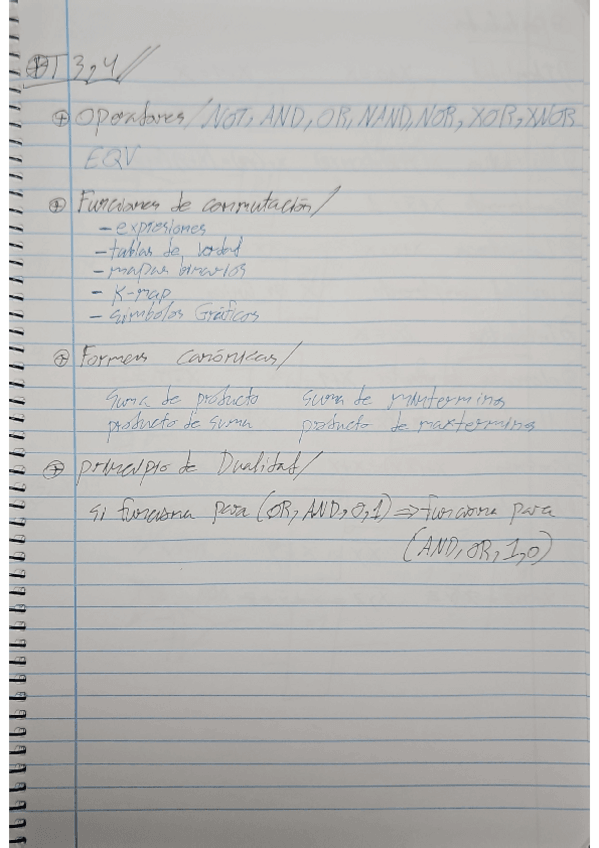 ⊕T 3,4//
⊕ Operadores / NOT, AND, OR, NAND, NOR, XOR, XNOR
EQV
⊕ Funciones de conmutación/
- expresiones
- tablas de verdad
- mapas binarios
- K-map
- símbolos Gráficos
⊕ Formas canónicas/
Suma de producto suma de minterminos
producto de suma producto de maxterminos
⊕ principio de Dualidad/
si funciona para (OR, AND, 0, 1) ⇒ funciona para
(AND, OR, 1, 0)